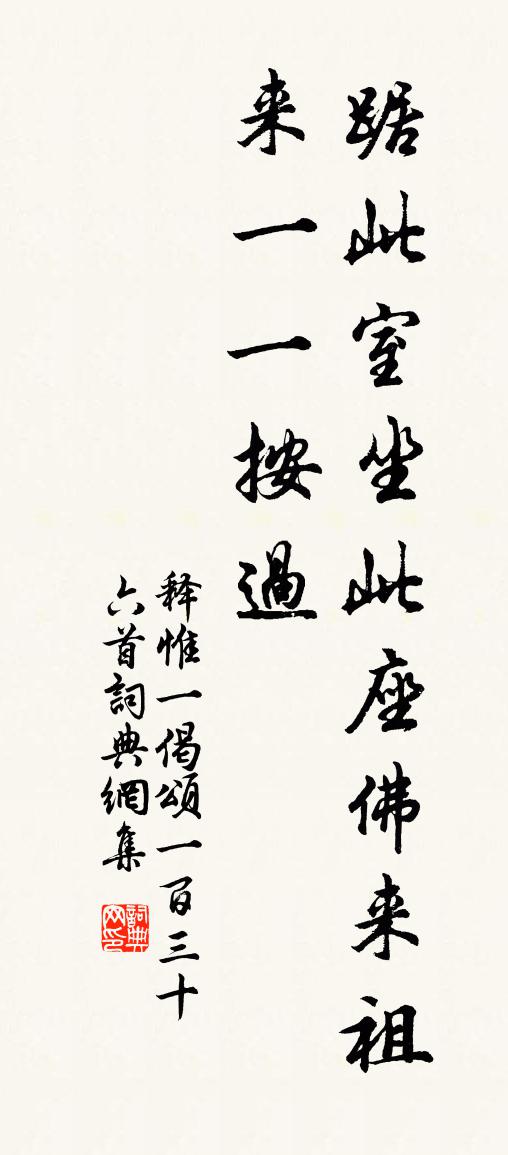 踞此室坐此座佛来祖
来一一按過
释惟一偈頌一百三十
六首詞典網集
詞典
网印